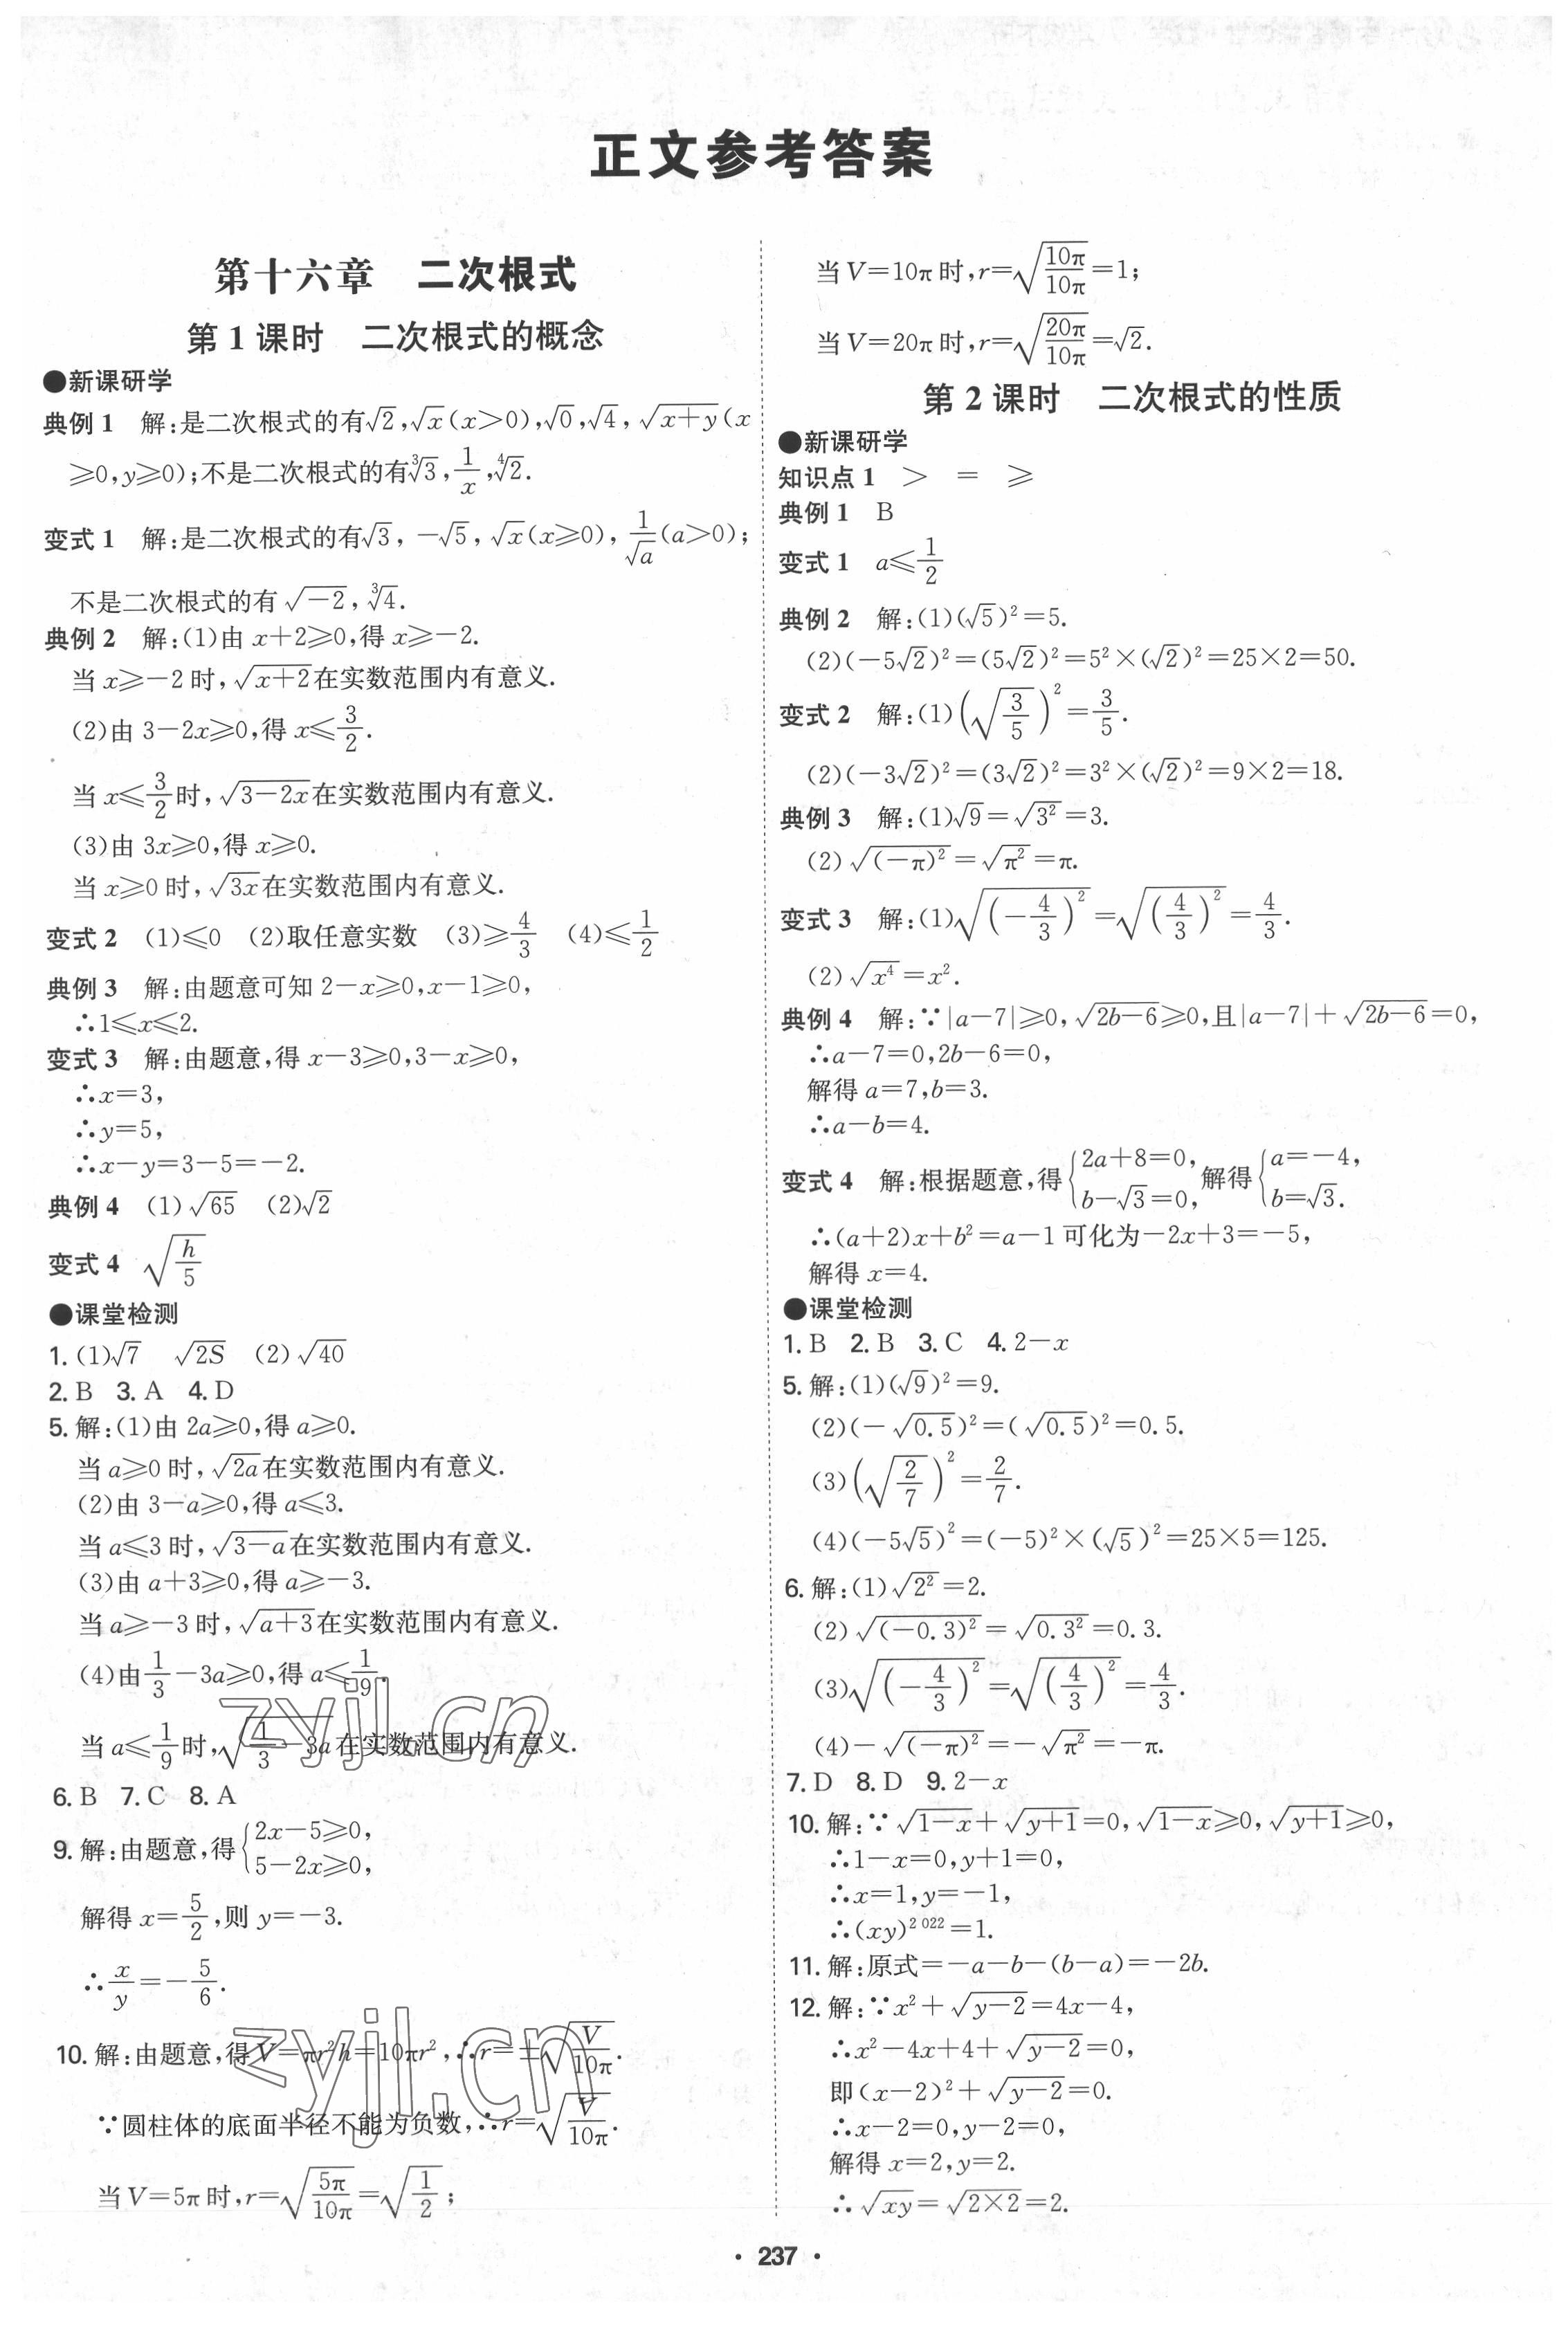 正文参考答案
第十六章　二次根式
第 1 课时　二次根式的概念
●新课研学
典例 1　解:是二次根式的有√2,√x(x>0),√0,√4,√(x+y)(x
≥0,y≥0);不是二次根式的有∛3,1/x,∜2.
变式 1　解:是二次根式的有√3,-√5,√x(x≥0),1/√a(a>0);
不是二次根式的有√(-2),∛4.
典例 2　解:(1)由 x+2≥0,得 x≥-2.
当 x≥-2 时,√(x+2)在实数范围内有意义.
(2)由 3-2x≥0,得 x≤3/2.
当 x≤3/2时,√(3-2x)在实数范围内有意义.
(3)由 3x≥0,得 x≥0.
当 x≥0 时,√(3x)在实数范围内有意义.
变式 2　(1)≤0　(2)取任意实数　(3)≥4/3　(4)≤1/2
典例 3　解:由题意可知 2-x≥0,x-1≥0,
∴1≤x≤2.
变式 3　解:由题意,得 x-3≥0,3-x≥0,
∴x=3,
∴y=5,
∴x-y=3-5=-2.
典例 4　(1)√65　(2)√2
变式 4　√(h/5)
●课堂检测
1. (1)√7　√(2S)　(2)√40
2. B　3. A　4. D
5. 解:(1)由 2a≥0,得 a≥0.
当 a≥0 时,√(2a)在实数范围内有意义.
(2)由 3-a≥0,得 a≤3.
当 a≤3 时,√(3-a)在实数范围内有意义.
(3)由 a+3≥0,得 a≥-3.
当 a≥-3 时,√(a+3)在实数范围内有意义.
(4)由1/3-3a≥0,得 a≤1/9.
当 a≤1/9时,√(1/3-3a)在实数范围内有意义.
6. B　7. C　8. A
9. 解:由题意,得{2x-5≥0,
5-2x≥0,
解得 x=5/2,则 y=-3.
∴x/y=-5/6.
10. 解:由题意,得 V=πr²h=10πr²,∴r=±√(V/10π).
∵圆柱体的底面半径不能为负数,∴r=√(V/10π).
当 V=5π 时,r=√(5π/10π)=√(1/2);
zyjl.cn
zyjl.cn
当 V=10π 时,r=√(10π/10π)=1;
当 V=20π 时,r=√(20π/10π)=√2.
第 2 课时　二次根式的性质
●新课研学
知识点 1　>　=　≥
典例 1　B
变式 1　a≤1/2
典例 2　解:(1)(√5)²=5.
(2)(-5√2)²=(5√2)²=5²×(√2)²=25×2=50.
变式 2　解:(1)(√(3/5))²=3/5.
(2)(-3√2)²=(3√2)²=3²×(√2)²=9×2=18.
典例 3　解:(1)√9=√(3²)=3.
(2)√((-π)²)=√(π²)=π.
变式 3　解:(1)√((-4/3)²)=√((4/3)²)=4/3.
(2)√(x⁴)=x².
典例 4　解:∵|a-7|≥0,√(2b-6)≥0,且|a-7|+√(2b-6)=0,
∴a-7=0,2b-6=0,
解得 a=7,b=3.
∴a-b=4.
变式 4　解:根据题意,得{2a+8=0, b-√3=0, 解得{a=-4, b=√3.
∴(a+2)x+b²=a-1 可化为-2x+3=-5,
解得 x=4.
●课堂检测
1. B　2. B　3. C　4. 2-x
5. 解:(1)(√9)²=9.
(2)(-√0.5)²=(√0.5)²=0.5.
(3)(√(2/7))²=2/7.
(4)(-5√5)²=(-5)²×(√5)²=25×5=125.
6. 解:(1)√(2²)=2.
(2)√((-0.3)²)=√(0.3²)=0.3.
(3)√((-4/3)²)=√((4/3)²)=4/3.
(4)-√((-π)²)=-√(π²)=-π.
7. D　8. D　9. 2-x
10. 解:∵√(1-x)+√(y+1)=0,√(1-x)≥0,√(y+1)≥0,
∴1-x=0,y+1=0,
∴x=1,y=-1,
∴(xy)²⁰²²=1.
11. 解:原式=-a-b-(b-a)=-2b.
12. 解:∵x²+√(y-2)=4x-4,
∴x²-4x+4+√(y-2)=0,
即(x-2)²+√(y-2)=0.
∴x-2=0,y-2=0,
解得 x=2,y=2.
∴√(xy)=√(2×2)=2.
· 237 ·